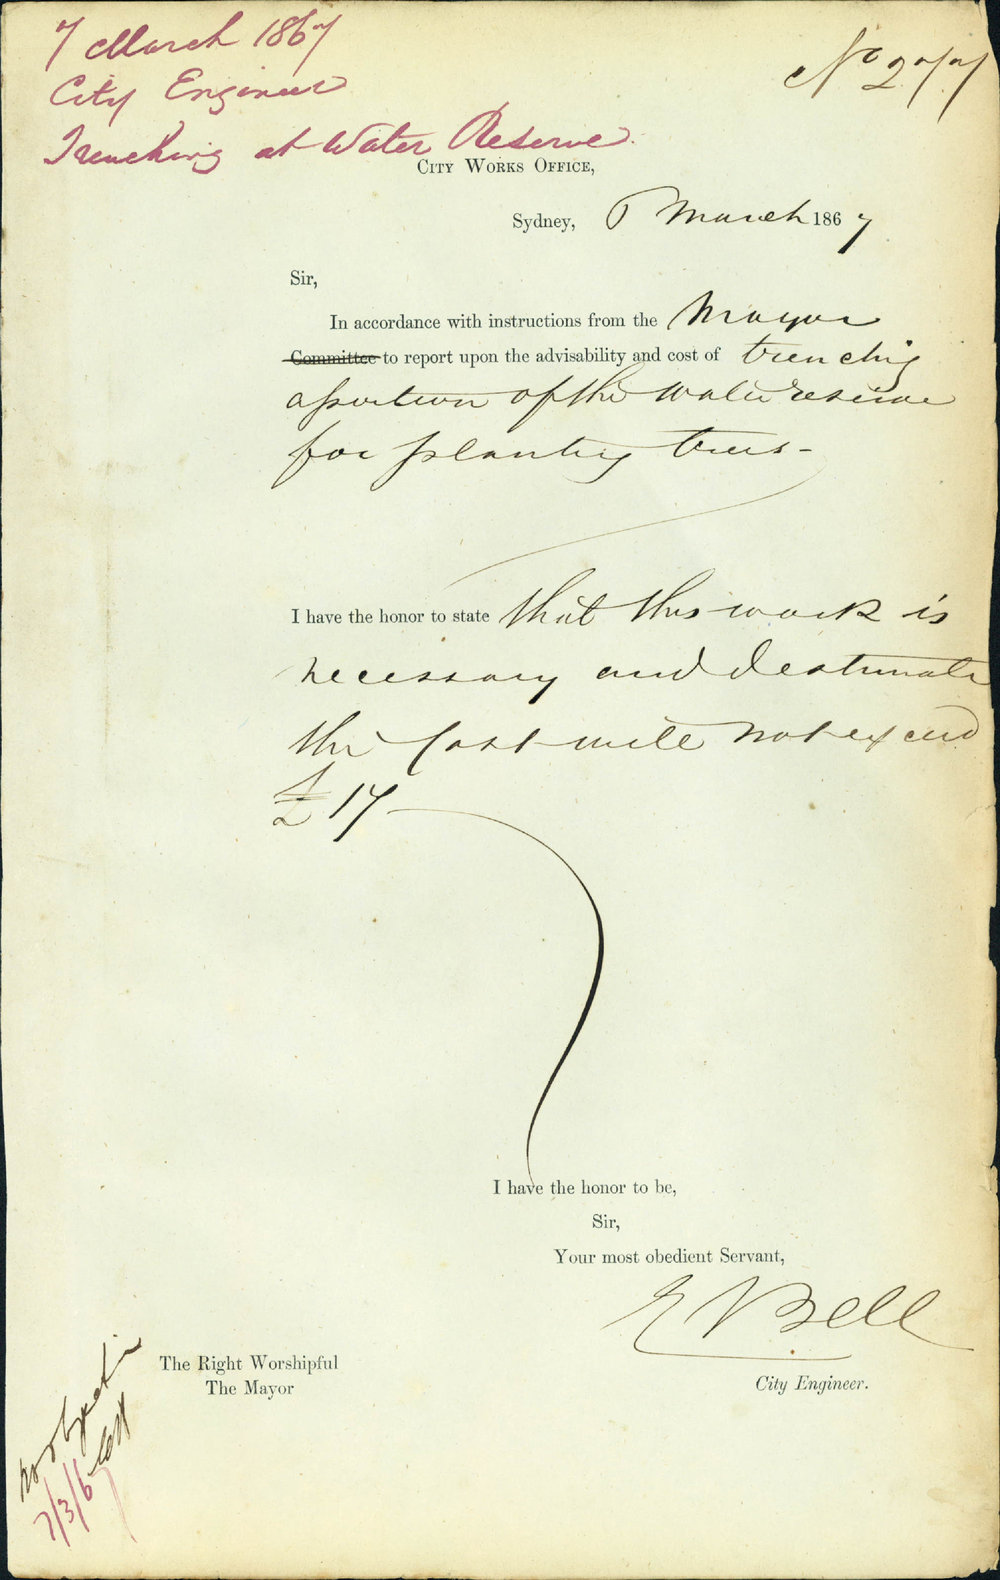 7 March 1867
City Engineer
Trenching at Water Reserve.
No 277
CITY WORKS OFFICE,
Sydney, 6 March 1867
Sir,
In accordance with instructions from the Mayor
Committee to report upon the advisability and cost of trenching
a portion of the water reserve
for planting trees -
I have the honor to state that this work is
necessary and I estimate
the Cost will not exceed
£17
I have the honor to be,
Sir,
Your most obedient Servant,
E Bell
City Engineer.
The Right Worshipful
The Mayor
no objection
7/3/67